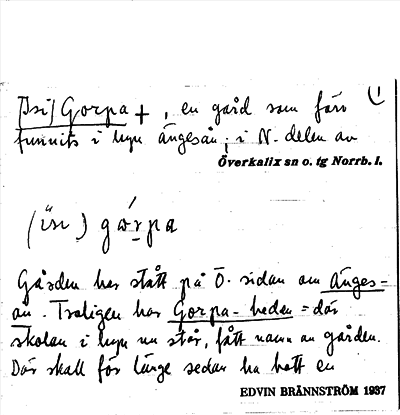 [Isi] Gorpa +, en gård som förr 1
funnits i byn Ängesån; i N. delen av
Överkalix sn o. tg Norrb. l.
(isi) górpa
Gården har stått på Ö. sidan om Änges=
ån. Troligen har Gorpa-heden = där
skolan i byn nu står, fått namn av gården.
Där skall för länge sedan ha bott en
EDVIN BRÄNNSTRÖM 1937